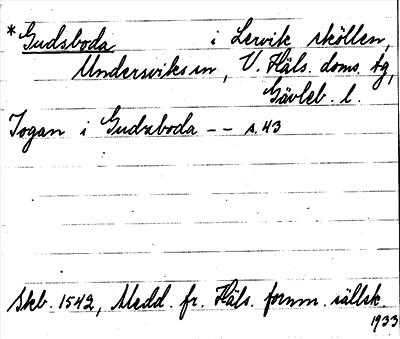 *Gudsboda i Lervik sköllen,
Undersviks sn, V. Häls. doms. tg,
Gävleb. l.
Jogan i Gudzboda -- s. 43
Skb. 1542, Medd. fr. Häls. fornm. sällsk.
1933